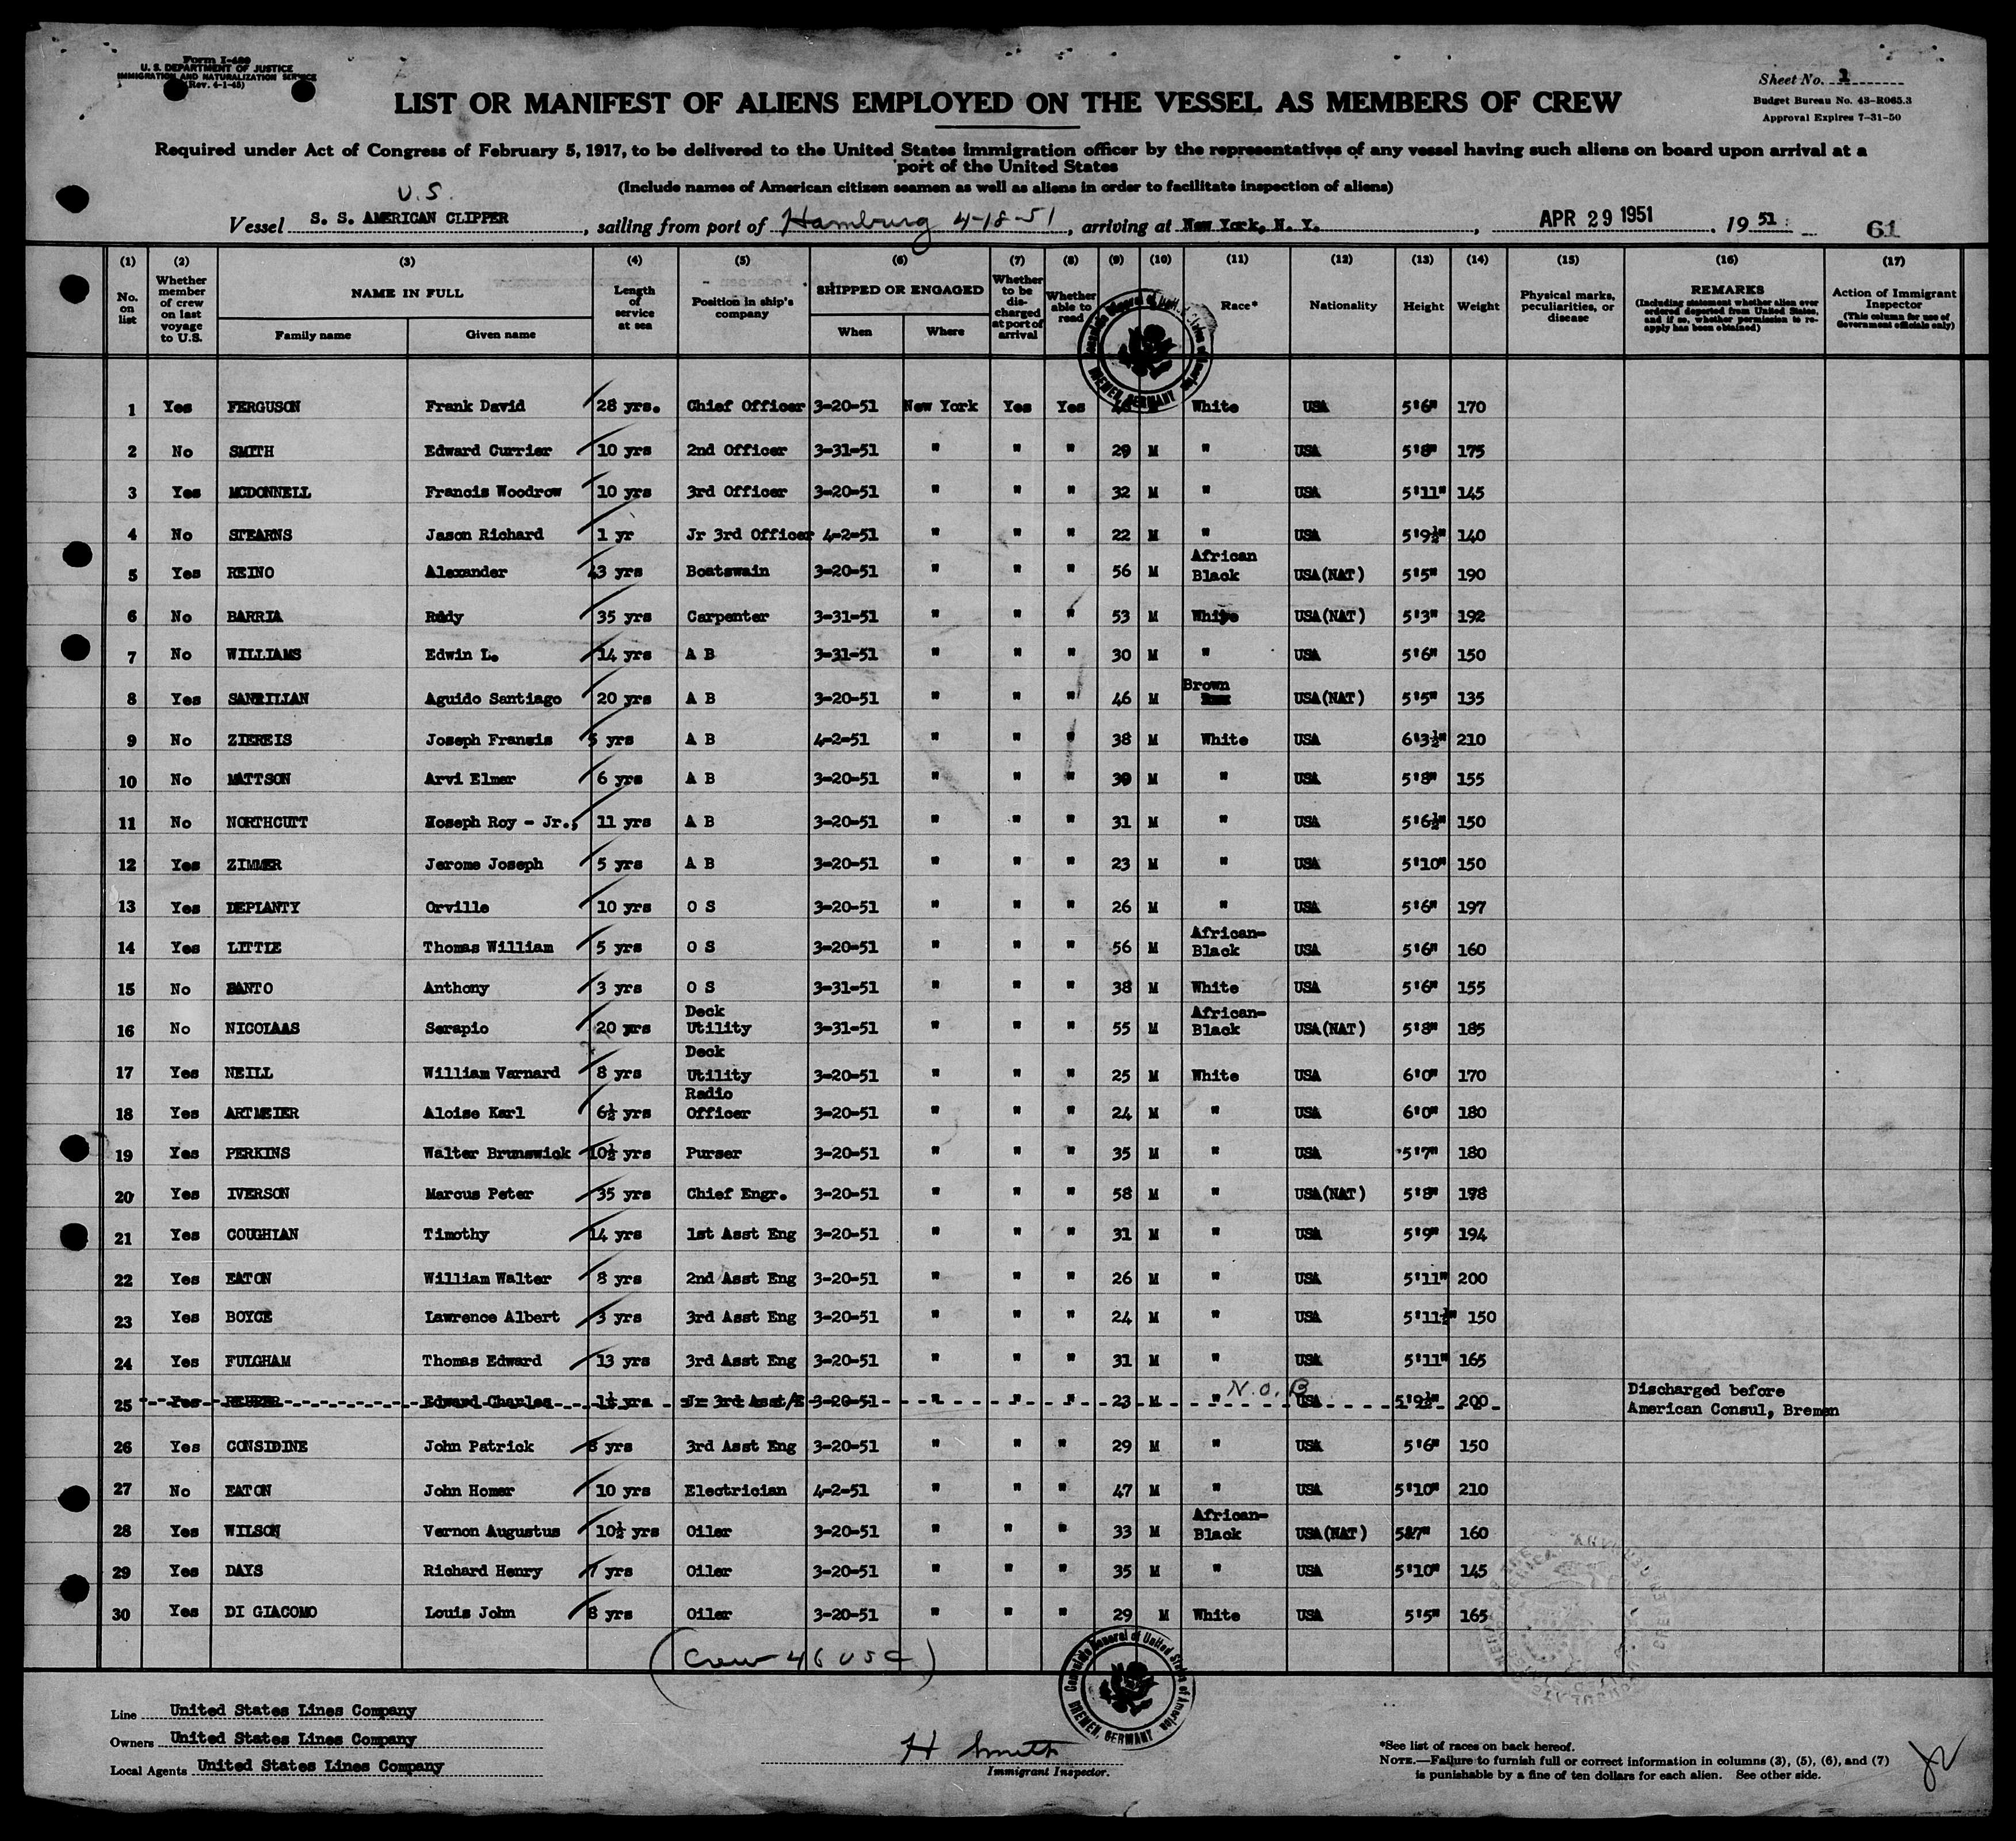 Form I-489
U. S. DEPARTMENT OF JUSTICE
IMMIGRATION AND NATURALIZATION SERVICE
(Rev. 4-1-45)
Sheet No. 1
Budget Bureau No. 43-R065.3
Approval Expires 7-31-50
LIST OR MANIFEST OF ALIENS EMPLOYED ON THE VESSEL AS MEMBERS OF CREW
Required under Act of Congress of February 5, 1917, to be delivered to the United States immigration officer by the representatives of any vessel having such aliens on board upon arrival at a
port of the United States
(Include names of American citizen seamen as well as aliens in order to facilitate inspection of aliens)
U.S.
Vessel S. S. AMERICAN CLIPPER, sailing from port of Hamburg 4-18-51, arriving at New York, N. Y., APR 29 1951, 1951 61
(1) (2) (3) (4) (5) (6) (7) (8) (9) (10) (11) (12) (13) (14) (15) (16) (17)
No. on list
Whether member of crew on last voyage to U.S.
NAME IN FULL
Family name Given name
Length of service at sea
Position in ship's company
SHIPPED OR ENGAGED
When Where
Whether to be discharged at port of arrival
Whether able to read
Race*
Nationality
Height
Weight
Physical marks, peculiarities, or disease
REMARKS
(Including statement whether alien ever ordered deported from United States, and if so, whether permission to reapply has been obtained)
Action of Immigrant Inspector
(This column for use of Government officials only)
1 Yes FERGUSON Frank David 28 yrs. Chief Officer 3-20-51 New York Yes Yes White USA 5'6" 170
2 No SMITH Edward Currier 10 yrs 2nd Officer 3-31-51 " " " 29 M " USA 5'8" 175
3 Yes MCDONNELL Francis Woodrow 10 yrs 3rd Officer 3-20-51 " " " 32 M " USA 5'11" 145
4 No STEARNS Jason Richard 1 yr Jr 3rd Officer 4-2-51 " " " 22 M " USA 5'9½" 140
5 Yes REINO Alexander 43 yrs Boatswain 3-20-51 " " " 56 M African Black USA(NAT) 5'5" 190
6 No BARRIA Rudy 35 yrs Carpenter 3-31-51 " " " 53 M White USA(NAT) 5'3" 192
7 No WILLIAMS Edwin L. 14 yrs A B 3-31-51 " " " 30 M " USA 5'6" 150
8 Yes Aguido Santiago 20 yrs A B 3-20-51 " " " 46 M Brown USA(NAT) 5'5" 135
9 No ZIEREIS Joseph Francis 5 yrs A B 4-2-51 " " " 38 M White USA 6'3½" 210
10 No MATTSON Arvi Elmer 6 yrs A B 3-20-51 " " " 30 M " USA 5'8" 155
11 No NORTHCUTT Joseph Roy - Jr., 11 yrs A B 3-20-51 " " " 31 M " USA 5'6½" 150
12 Yes ZIMMER Jerome Joseph 5 yrs A B 3-20-51 " " " 23 M " USA 5'10" 150
13 Yes DEPLANTY Orville 10 yrs O S 3-20-51 " " " 26 M " USA 5'6" 197
14 Yes LITTLE Thomas William 5 yrs O S 3-20-51 " " " 56 M African-Black USA 5'6" 160
15 No Anthony 3 yrs O S 3-31-51 " " " 38 M White USA 5'6" 155
16 No NICOLAAS Serapio 20 yrs Deck Utility 3-31-51 " " " 55 M African-Black USA(NAT) 5'8" 185
17 Yes NEILL William Varnard 8 yrs Deck Utility 3-20-51 " " " 25 M White USA 6'0" 170
18 Yes ARTMEIER Aloise Karl 6½ yrs Radio Officer 3-20-51 " " " 24 M " USA 6'0" 180
19 Yes PERKINS Walter Brunswick 10½ yrs Purser 3-20-51 " " " 35 M " USA 5'7" 180
20 Yes IVERSON Marcus Peter 35 yrs Chief Engr. 3-20-51 " " " 58 M " USA(NAT) 5'8" 198
21 Yes COUGHLAN Timothy 14 yrs 1st Asst Eng 3-20-51 " " " 31 M " USA 5'9" 194
22 Yes EATON William Walter 8 yrs 2nd Asst Eng 3-20-51 " " " 26 M " USA 5'11" 200
23 Yes BOYCE Lawrence Albert 3 yrs 3rd Asst Eng 3-20-51 " " " 24 M " USA 5'11½" 150
24 Yes FULGHAM Thomas Edward 13 yrs 3rd Asst Eng 3-20-51 " " " 31 M " USA 5'11" 165
25 Yes Edward Charles 1½ yrs Jr 3rd Asst/E 3-20-51 " " " 23 M " N.O.B USA 5'9½" 200 Discharged before
American Consul, Bremen
26 Yes CONSIDINE John Patrick 8 yrs 3rd Asst Eng 3-20-51 " " " 29 M " USA 5'6" 150
27 No EATON John Homer 10 yrs Electrician 4-2-51 " " " 47 M " USA 5'10" 210
28 Yes WILSON Vernon Augustus 10½ yrs Oiler 3-20-51 " " " 33 M African-Black USA(NAT) 5'7" 160
29 Yes DAYS Richard Henry 7 yrs Oiler 3-20-51 " " " 35 M " USA 5'10" 145
30 Yes DI GIACOMO Louis John 8 yrs Oiler 3-20-51 " " " 29 M White USA 5'5" 165
(Crew 46 USC)
Consulate General of United States of America
BREMEN, GERMANY
Line United States Lines Company
Owners United States Lines Company
Local Agents United States Lines Company
H Smith
Immigrant Inspector.
*See list of races on back hereof.
NOTE.—Failure to furnish full or correct information in columns (3), (5), (6), and (7)
is punishable by a fine of ten dollars for each alien. See other side.